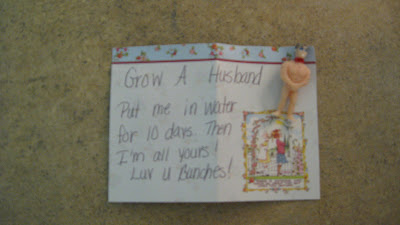 Grow A Husband
Put me in water
for 10 days. Then
I'm all yours!
Luv U Bunches!